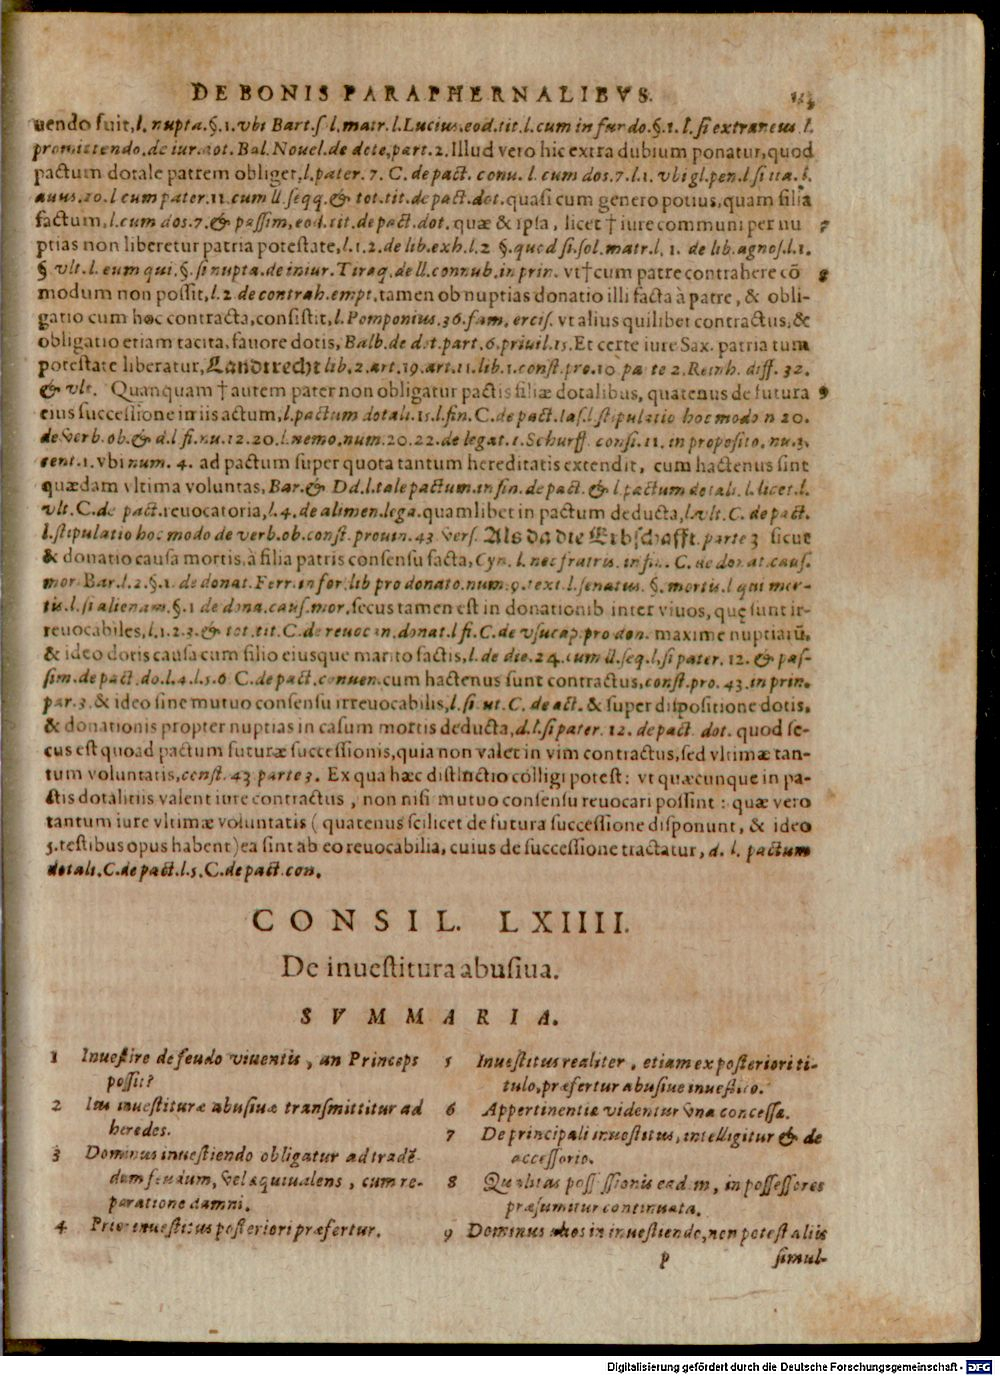 DE BONIS PARAPHERNALIBVS.
uendo fuit, l. nupta. §. 1. vbi Bart. s l. matr. l. Lucius. eod. tit. l. cum in fundo. §. 1. l. si extraneus l.
promittendo. de iur. dot. Bal. Nouel. de dote, part. 2. Illud vero hic extra dubium ponatur, quod
pactum dotale patrem obliget, l. pater. 7. C. de pact. conu. l. cum dos. 7. l. 1. vbi gl. pen. l. si ita. l.
auus. 20. l cum pater. 11. cum ll. seqq. & tot. tit. de pact. dot. quasi cum genero potius, quam filia
factum, l. cum dos. 7. & passim, eod. tit. de pact. dot. quæ & ipsa, licet † iure communi per nu 7
ptias non liberetur patria potestate, l. 1. 2. de lib. exh. l. 2 §. quod si. sol. matr. l, 1. de lib. agnos. l. 1.
§ vlt. l. eum qui. §. si nupta. de iniur. Tiraq. de ll. connub. in prin. vt † cum patre contrahere cō 8
modum non possit, l. 2 de contrah. empt, tamen ob nuptias donatio illi facta à patre, & obli-
gatio cum hoc contracta, consistit, l. Pomponius. 36. fam, ercis. vt alius quilibet contractus, &
obligatio etiam tacita, fauore dotis, Balb. de dot. part. 6. priuil. 15. Et certe iure Sax. patria tum
potestate liberatur, Landtrecht lib, 2. art. 19. art. 11. lib. 1. const. pro. 10 pa te 2. Reinh. diff. 32.
& vlt. Quanquam † autem pater non obligatur pactis filiæ dotalibus, quatenus de futura 9
eius successione in iis actum, l. pactum dotali. 15. l. fin. C. de pact. l as. l. stipulatio hoc modo n 20.
de verb. ob. & d. l fi. nu. 12. 20. l. nemo, num. 20. 22. de legat. 1. Schurff. consi. 11. in proposito, nu. 3.
cent. 1. vbi num. 4. ad pactum super quota tantum hereditatis extendit, cum hactenus sint
quædam vltima voluntas, Bar. & Dd. l. tale pactum. in fin. de pact. & l pactum dotali. l. licet. l.
vlt. C. de pact. reuocatoria, l. 4. de alimen. lega. quamlibet in pactum deducta, l. vlt. C. de pact.
l. stipulatio hoc modo de verb. ob. const. prouin. 43 vers. Als da die Erbschafft. parte 3 sicut
& donatio causa mortis, à filia patris consensu facta, Cyn. l. nec fratris. in fin. C. de donat. caus.
mor Bar. l. 2. §. 1. de donat. Ferr. in for. lib pro donato. num. 9. text. l. senatus. §. mortis. l qui mor-
tis. l. si alienam. §. 1 de dona. caus. mor, secus tamen est in donationib inter viuos, quę sunt ir-
reuocabiles, l. 1. 2. 3. & tot. tit. C. de reuocan. donat. l fi. C. de vsucap. pro don. maxime nuptiarū,
& ideo dotis causa cum filio eiusque marito factis, l. de die. 24. cum ll. seq. l. si pater. 12. & pas-
sim. de pact. do. l. 4. l. 5. 6 C. de pact. conuen. cum hactenus sunt contractus, const. pro. 43. in prin.
par. 3. & ideo sine mutuo consensu irreuocabilis, l. si. ut. C. de act. & super dispositione dotis,
& donationis propter nuptias in casum mortis deducta, d. l. si pater. 12. de pact. dot. quod se-
cus est quoad pactum futuræ successionis, quia non valet in vim contractus, sed vltimæ tan-
tum voluntatis, const. 43 parte 3. Ex qua hæc distinctio colligi potest: vt quæcunque in pa-
ctis dotalitiis valent iure contractus, non nisi mutuo consensu reuocari possint: quæ vero
tantum iure vltimæ voluntatis (quatenus scilicet de futura successione disponunt, & ideo
5. testibus opus habent) ea sint ab eo reuocabilia, cuius de successione tractatur, d. l. pactum
dotali. C. de pact. l. 5. C. de pact. con.
CONSIL. LXIIII.
De inuestitura abusiua.
SVMMARIA.
1 Inuestire de feudo viuentis, an Princeps
possit?
2 Ius inuestituræ abusiuæ transmittitur ad
heredes.
3 Dominus inuestiendo obligatur ad tradē-
dum feudum, vel æquiualens, cum re-
paratione damni.
4 Prior inuestitus posteriori præfertur.
5 Inuestitus realiter, etiam ex posteriori ti-
tulo, præfertur abusiue inuestito.
6 Appertinentiæ videntur vna concessæ.
7 De principali inuestitus, intelligitur & de
accessorio.
8 Qualitas possessionis eadem, in possessores
præsumitur continuata.
9 Dominus in inuestiendo, non potest aliis
p simul-
Digitalisierung gefördert durch die Deutsche Forschungsgemeinschaft - DFG